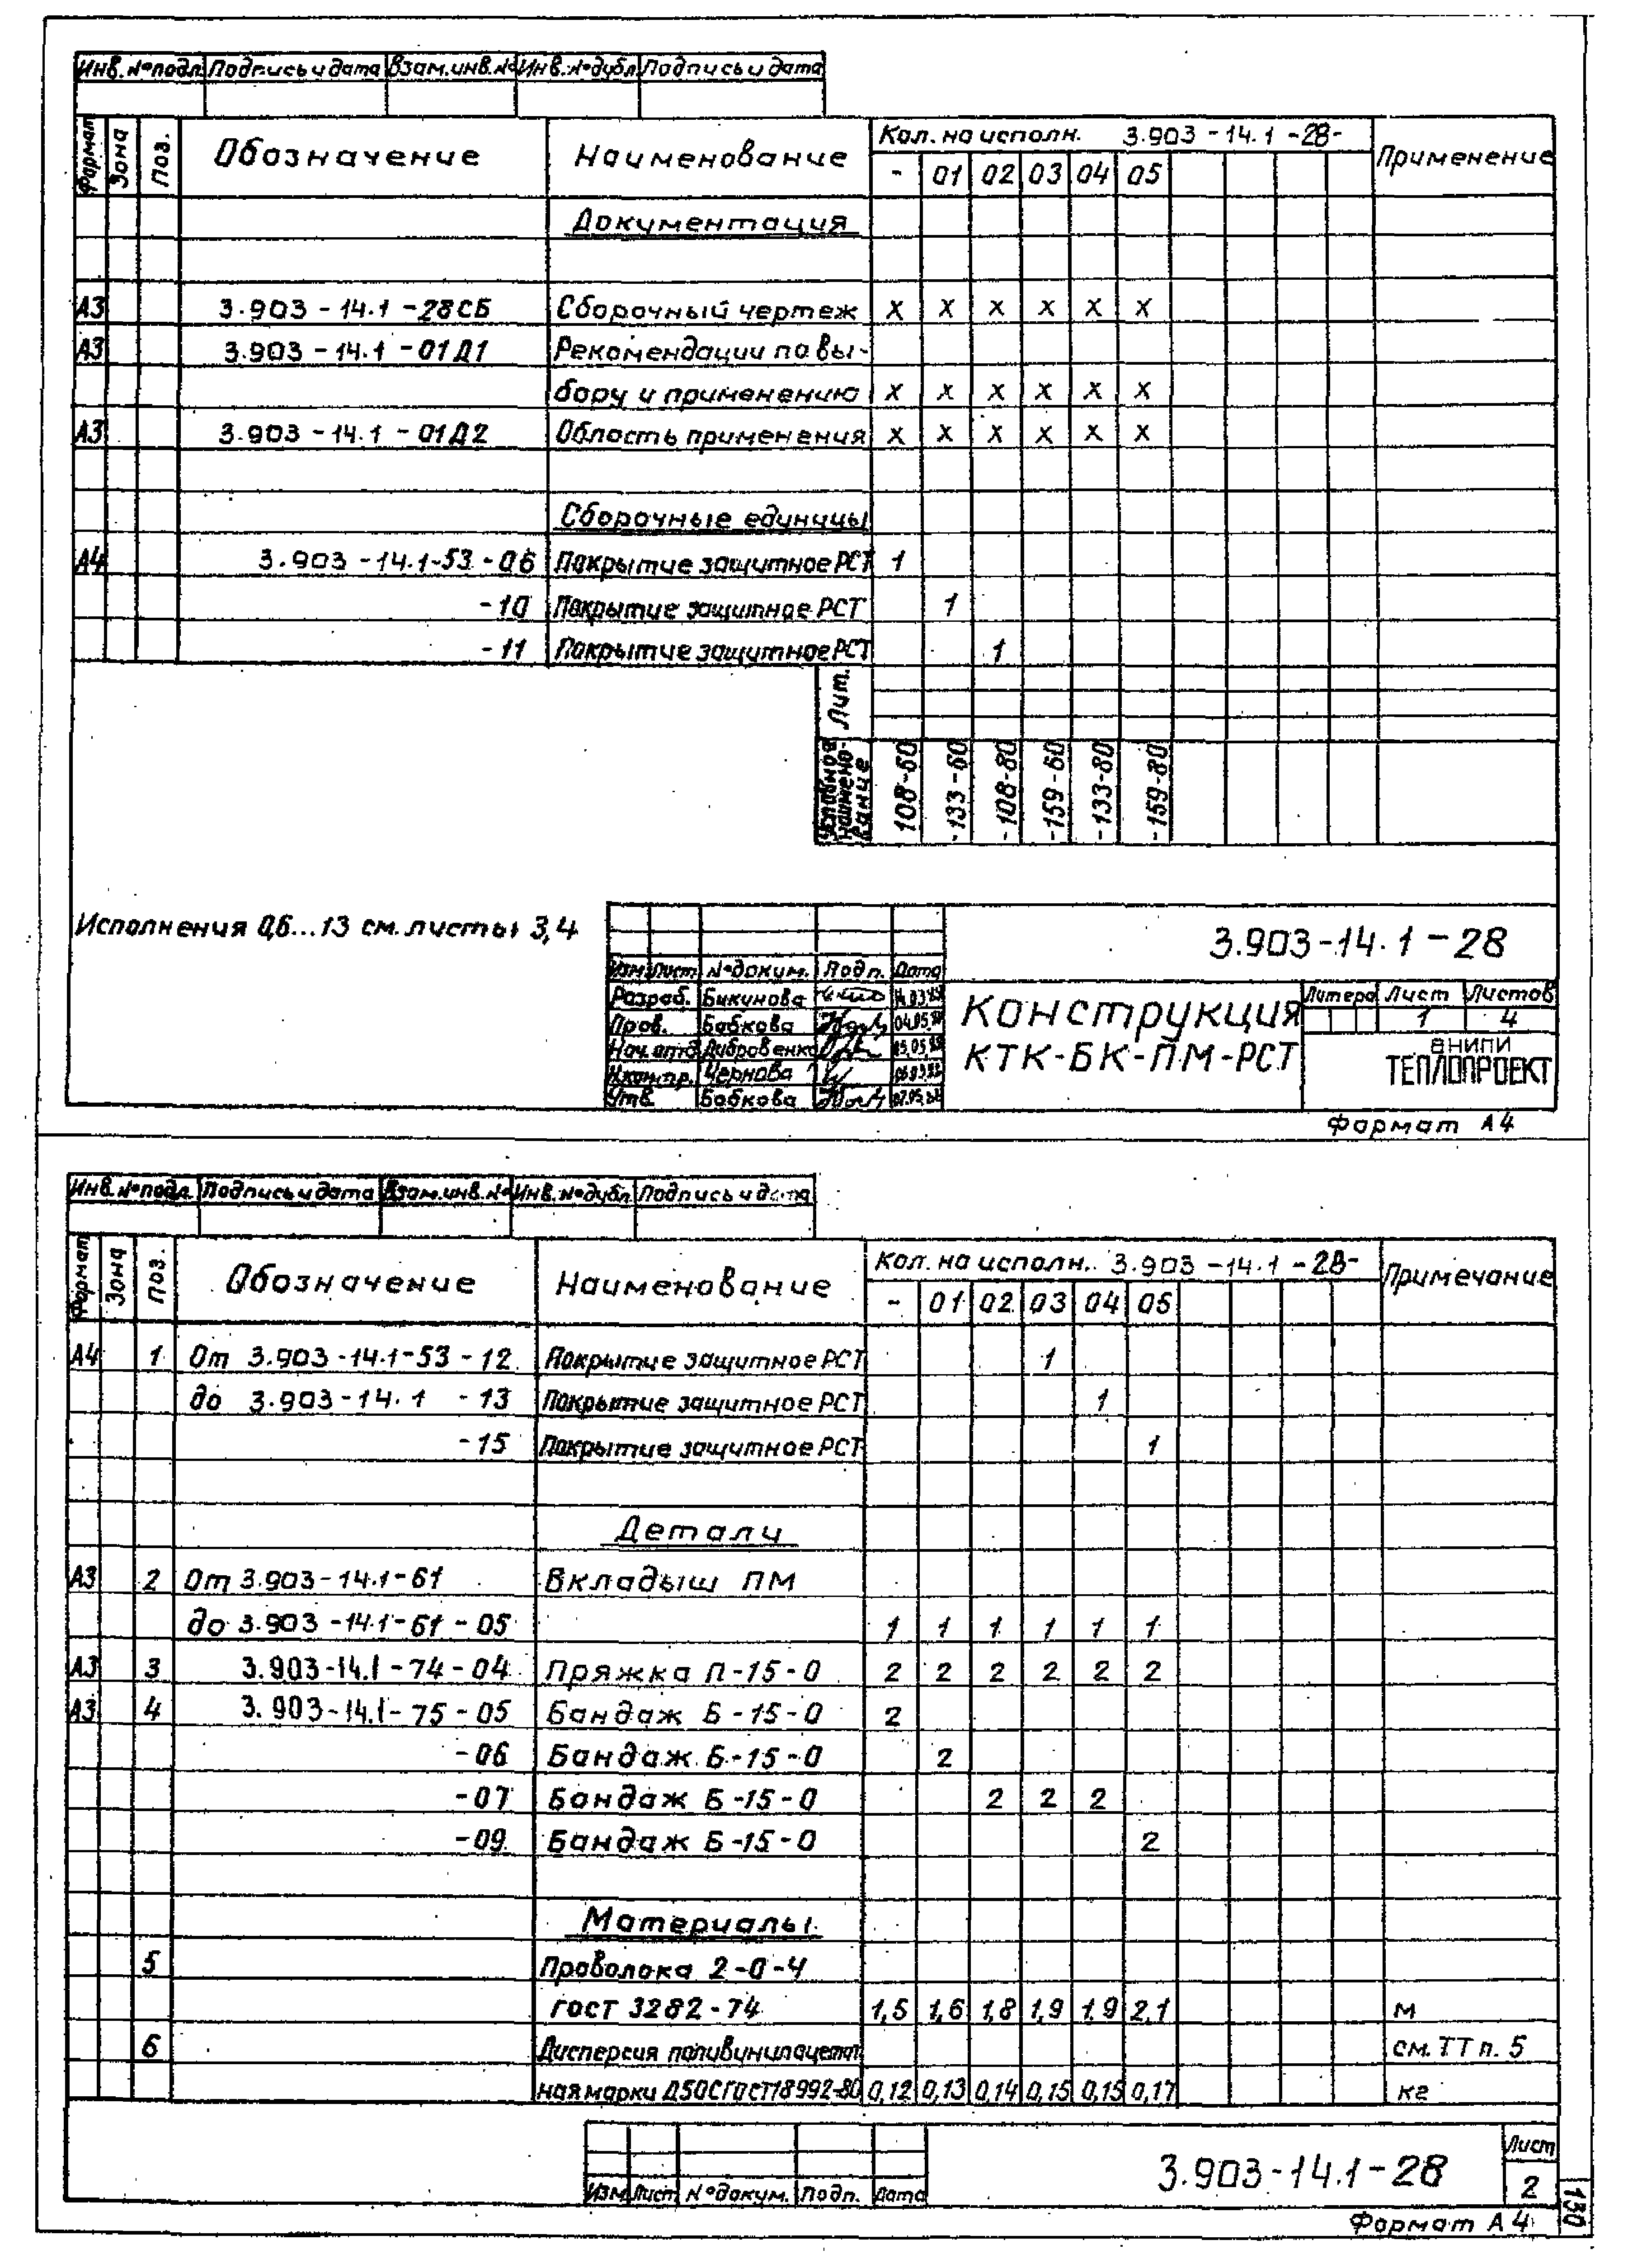 Инв. № подл. Подпись и дата Взам. инв. № Инв. № дубл. Подпись и дата
Формат Зона Поз. Обозначение Наименование Кол. на исполн. 3.903-14.1-28- Применение
- 01 02 03 04 05
Документация
А3 3.903-14.1-28СБ Сборочный чертеж х х х х х х
А3 3.903-14.1-01Д1 Рекомендации по вы-
бору и применению х х х х х х
А3 3.903-14.1-01Д2 Область применения х х х х х х
Сборочные единицы
А4 3.903-14.1-53-06 Покрытие защитное РСТ 1
-10 Покрытие защитное РСТ 1
-11 Покрытие защитное РСТ 1
Лит.
Условное наимено-вание 108-60 -133-60 -108-80 -159-60 -133-80 -159-80
Исполнения 06...13 см. листы 3,4
3.903-14.1-28
Изм. Лист № докум. Подп. Дата
Разраб. Бикунова
Пров. Бобкова
Нач. отд.
Н.контр. Чернова
Утв. Бобкова
Конструкция
КТК-БК-ПМ-РСТ
Литера Лист Листов
1 4
ВНИПИ
ТЕПЛОПРОЕКТ
Формат А4
Инв. № подл. Подпись и дата Взам. инв. № Инв. № дубл. Подпись и дата
Формат Зона Поз. Обозначение Наименование Кол. на исполн. 3.903-14.1-28- Примечание
- 01 02 03 04 05
А4 1 От 3.903-14.1-53-12 Покрытие защитное РСТ 1
до 3.903-14.1 -13 Покрытие защитное РСТ 1
-15 Покрытие защитное РСТ 1
Детали
А3 2 От 3.903-14.1-61 Вкладыш ПМ
до 3.903-14.1-61-05 1 1 1 1 1 1
А3 3 3.903-14.1-74-04 Пряжка П-15-0 2 2 2 2 2 2
А3 4 3.903-14.1-75-05 Бандаж Б-15-0 2
-06 Бандаж Б-15-0 2
-07 Бандаж Б-15-0 2 2 2
-09 Бандаж Б-15-0 2
Материалы
5 Проволока 2-0-Ч
ГОСТ 3282-74 1,5 1,6 1,8 1,9 1.9 2,1 м
6 Дисперсия поливинилацетат см. ТТ п. 5
ная марки Д50С ГОСТ18992-80 0,12 0,13 0,14 0,15 0,15 0,17 кг
3.903-14.1-28
Лист
2
Изм Лист № докум. Подп. Дата
Формат А4
130